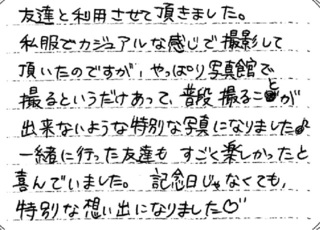 友達と利用させて頂きました。
私服でカジュアルな感じで撮影して
頂いたのですが、やっぱり写真館で
撮るというだけあって、普段撮ることが
出来ないような特別な写真になりました♪
一緒に行った友達も すごく楽しかったと
喜んでいました。 記念日じゃなくても、
特別な想い出になりました♡